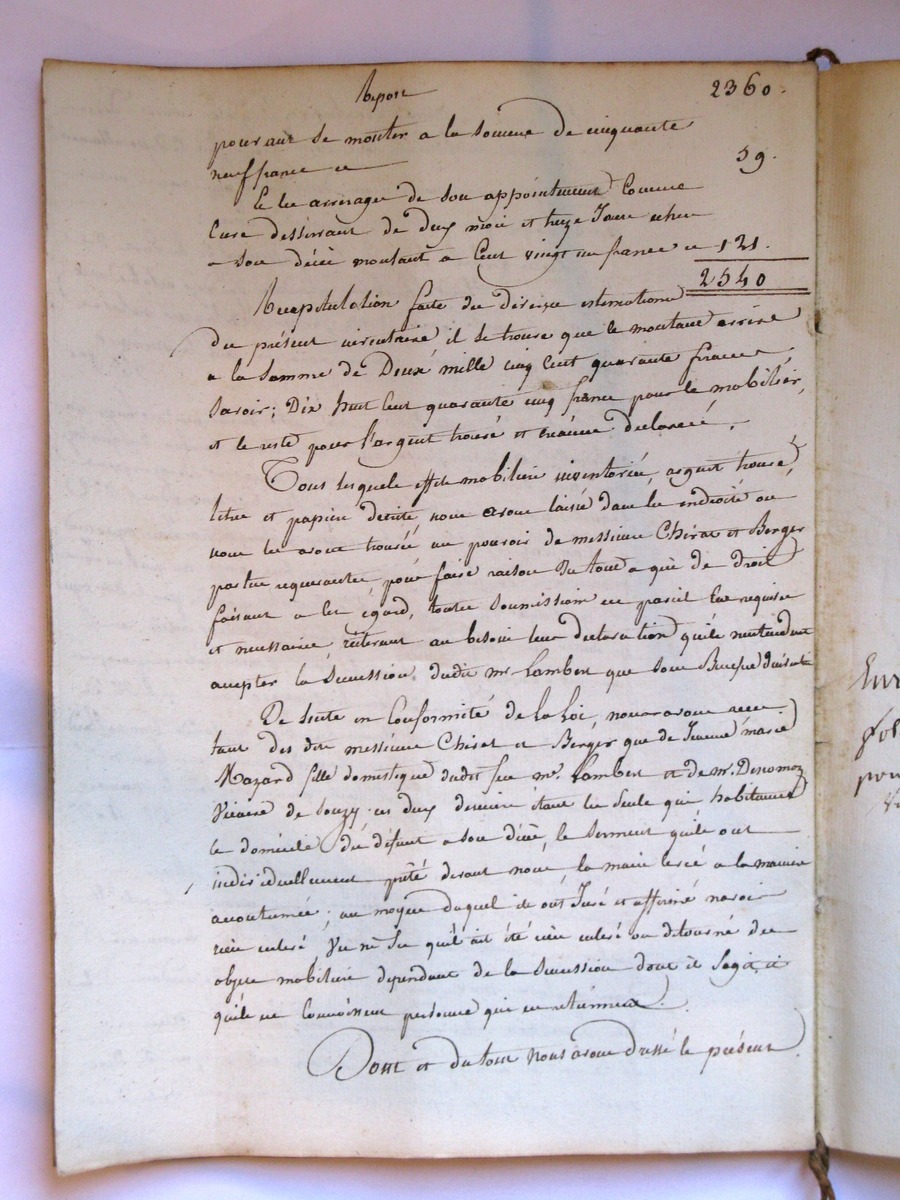 Report 2360.
pouvant se monter a la somme de cinquante
neuf francs ci 59.
Et les arrerages de son appointement Comme
Curé desservant de deux mois et treize Jours echus
a son décès montant a Cent vingt un francs ci 121.
2540
Recapitulation faite des diverses estimations
du présent inventaire il se trouve que le montant arrive
a la somme de Deux mille cinq Cent quarante francs
savoir; Dix huit Cent quarante cinq francs pour le mobilier,
et le reste pour l'argent trouvé et créances declarées.
Tous lesquels effets mobiliers inventoriés, argent trouvé,
titres et papiers decrits, nous avons laissé dans les endroits ou
nous les avons trouvés au pouvoir de messieurs Chirat et Berger
parties requerantes, pour faire raison du tout a qui de droit
faisant a cet égard, toutes soumissions en pareil Cas requises
et necessaires, réiterant au besoin leur declaration qu'ils n'entendent
accepter la Succession dudit mr. Lambert que sous Benefice d'inventaire
De suite en Conformité de la Loi, nous avons recu
tant des dits messieurs Chirat et Berger que de Jeanne marie
Mazard fille domestique dudit feu mr. Lambert et de mr.
Vicaire de Souzy ces deux derniers étant les Seuls qui habitaient
le domicile du défunt a son décès, le serment qu'ils ont
individuellement prêté devant nous, la main levée a la maniere
accoutumée; au moyen duquel ils ont Juré et affirmé n'avoir
rien enlevé Vu ni Su qu'il ait été rien enlevé ou détourné des
objets mobiliers dependant de la Succession dont il s'agit, et
qu'ils ne Connoissent personne qui en retiennent.
Dont et du tout Nous avons dressé le présent
Enr
fol
pou